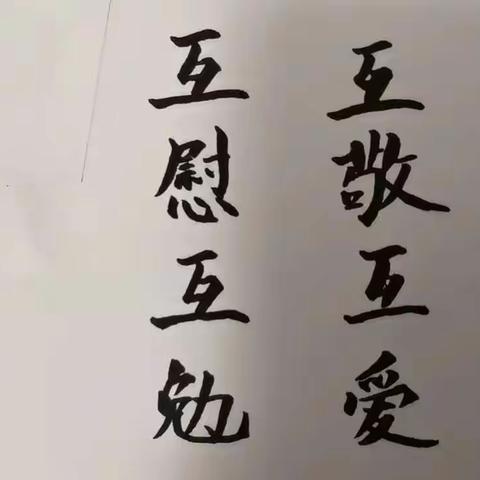 互敬互爱
互慰互勉